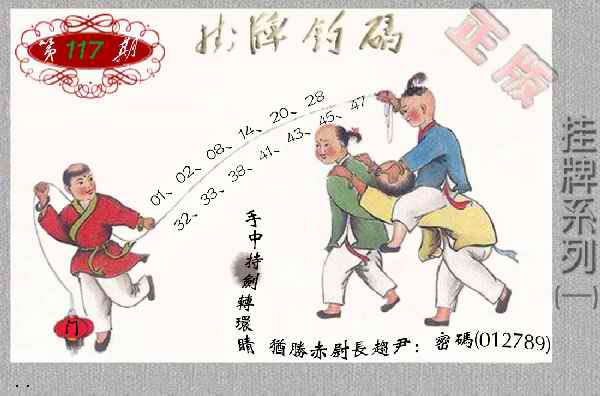 第117期
挂牌钓码
正版
挂牌系列(一)
01、02、08、14、20、28
32、33、38、41、43、45、47
手中持劍轉環睛
猶勝赤尉長趙尹：密碼(012789)
門